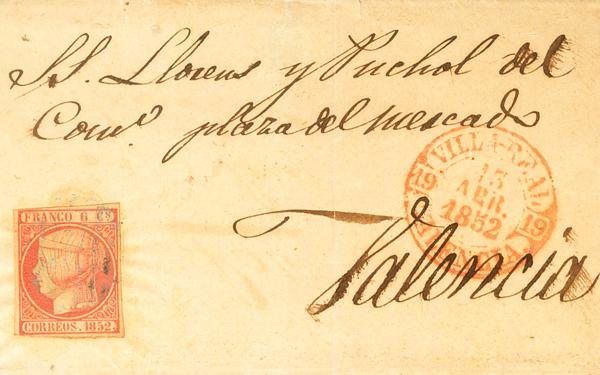 SS. Llorens y Puchol del
Comº. plaza del mercado
VILLARREAL
19
13
ABR.
1852
19
VALENCIA
FRANCO 6 Cs
CORREOS. 1852.
Valencia